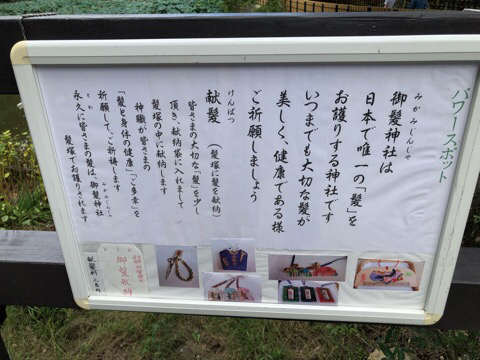 パワースポット
御髪神社は
みかみじんじゃ
日本で唯一の「髪」を
お護りする神社です
いつまでも大切な髪が
美しく、健康である様
ご祈願しましょう
献髪 (髪塚に髪を献納)
けんぱつ
皆さまの大切な「髪」を少し
頂き、献納袋に入れまして
髪塚の中に献納します
神職が皆さまの
「髪と身体の健康」「ご多幸」を
祈願して、ご祈祷します
永久に皆さまの髪は、御髪神社
とわ
みかみじんじゃ
髪塚でお護りされます
御髪献納
献髪料